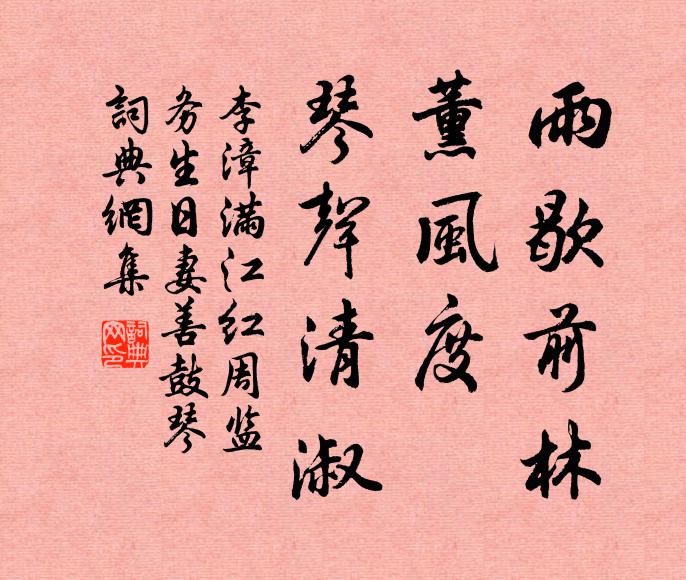 雨歇前林
薰風度
琴聲清淑
李漳满江红周监
务生日妻善鼓琴
詞典網集
詞典网印